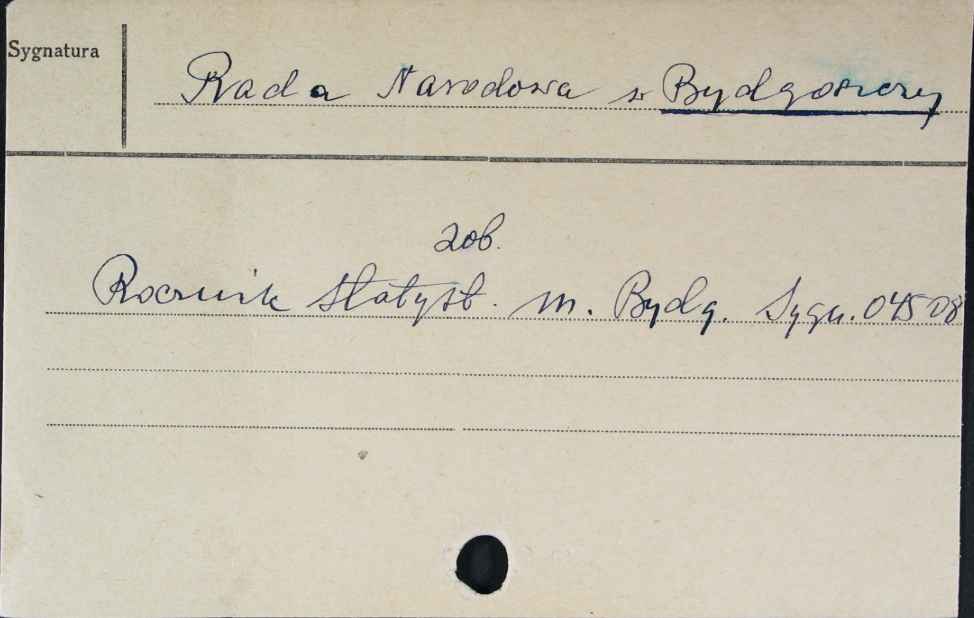 Sygnatura
Rada Narodowa w Bydgoszczy
zob.
Rocznik Statyst. m. Bydg. Sygn. 04508